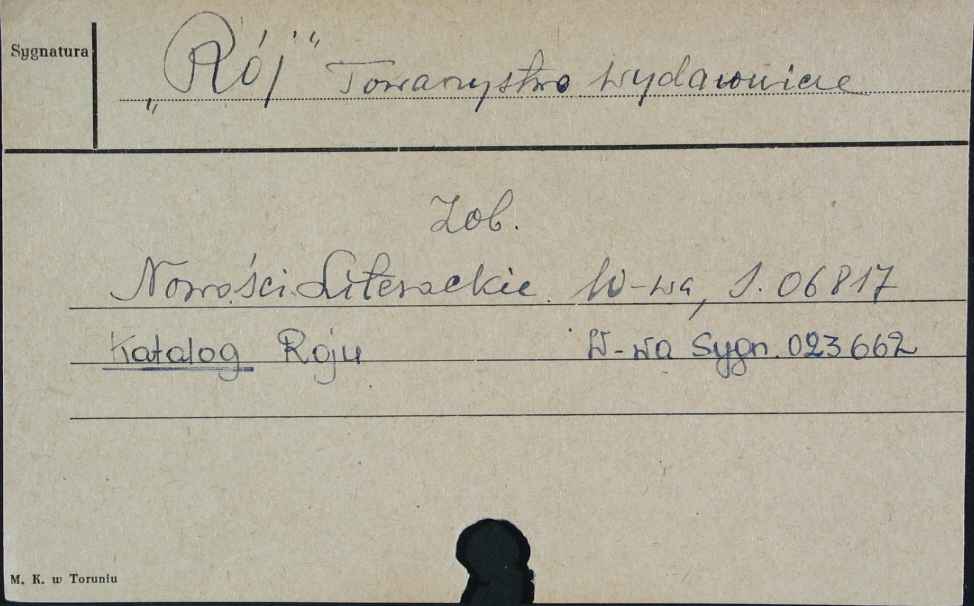 Sygnatura
„Rój" Towarzystwo wydawnicze
Zob.
Nowości Literackie. W-wa, S. 06817
Katalog Roju W-wa Sygn. 023662
M. K. w Toruniu